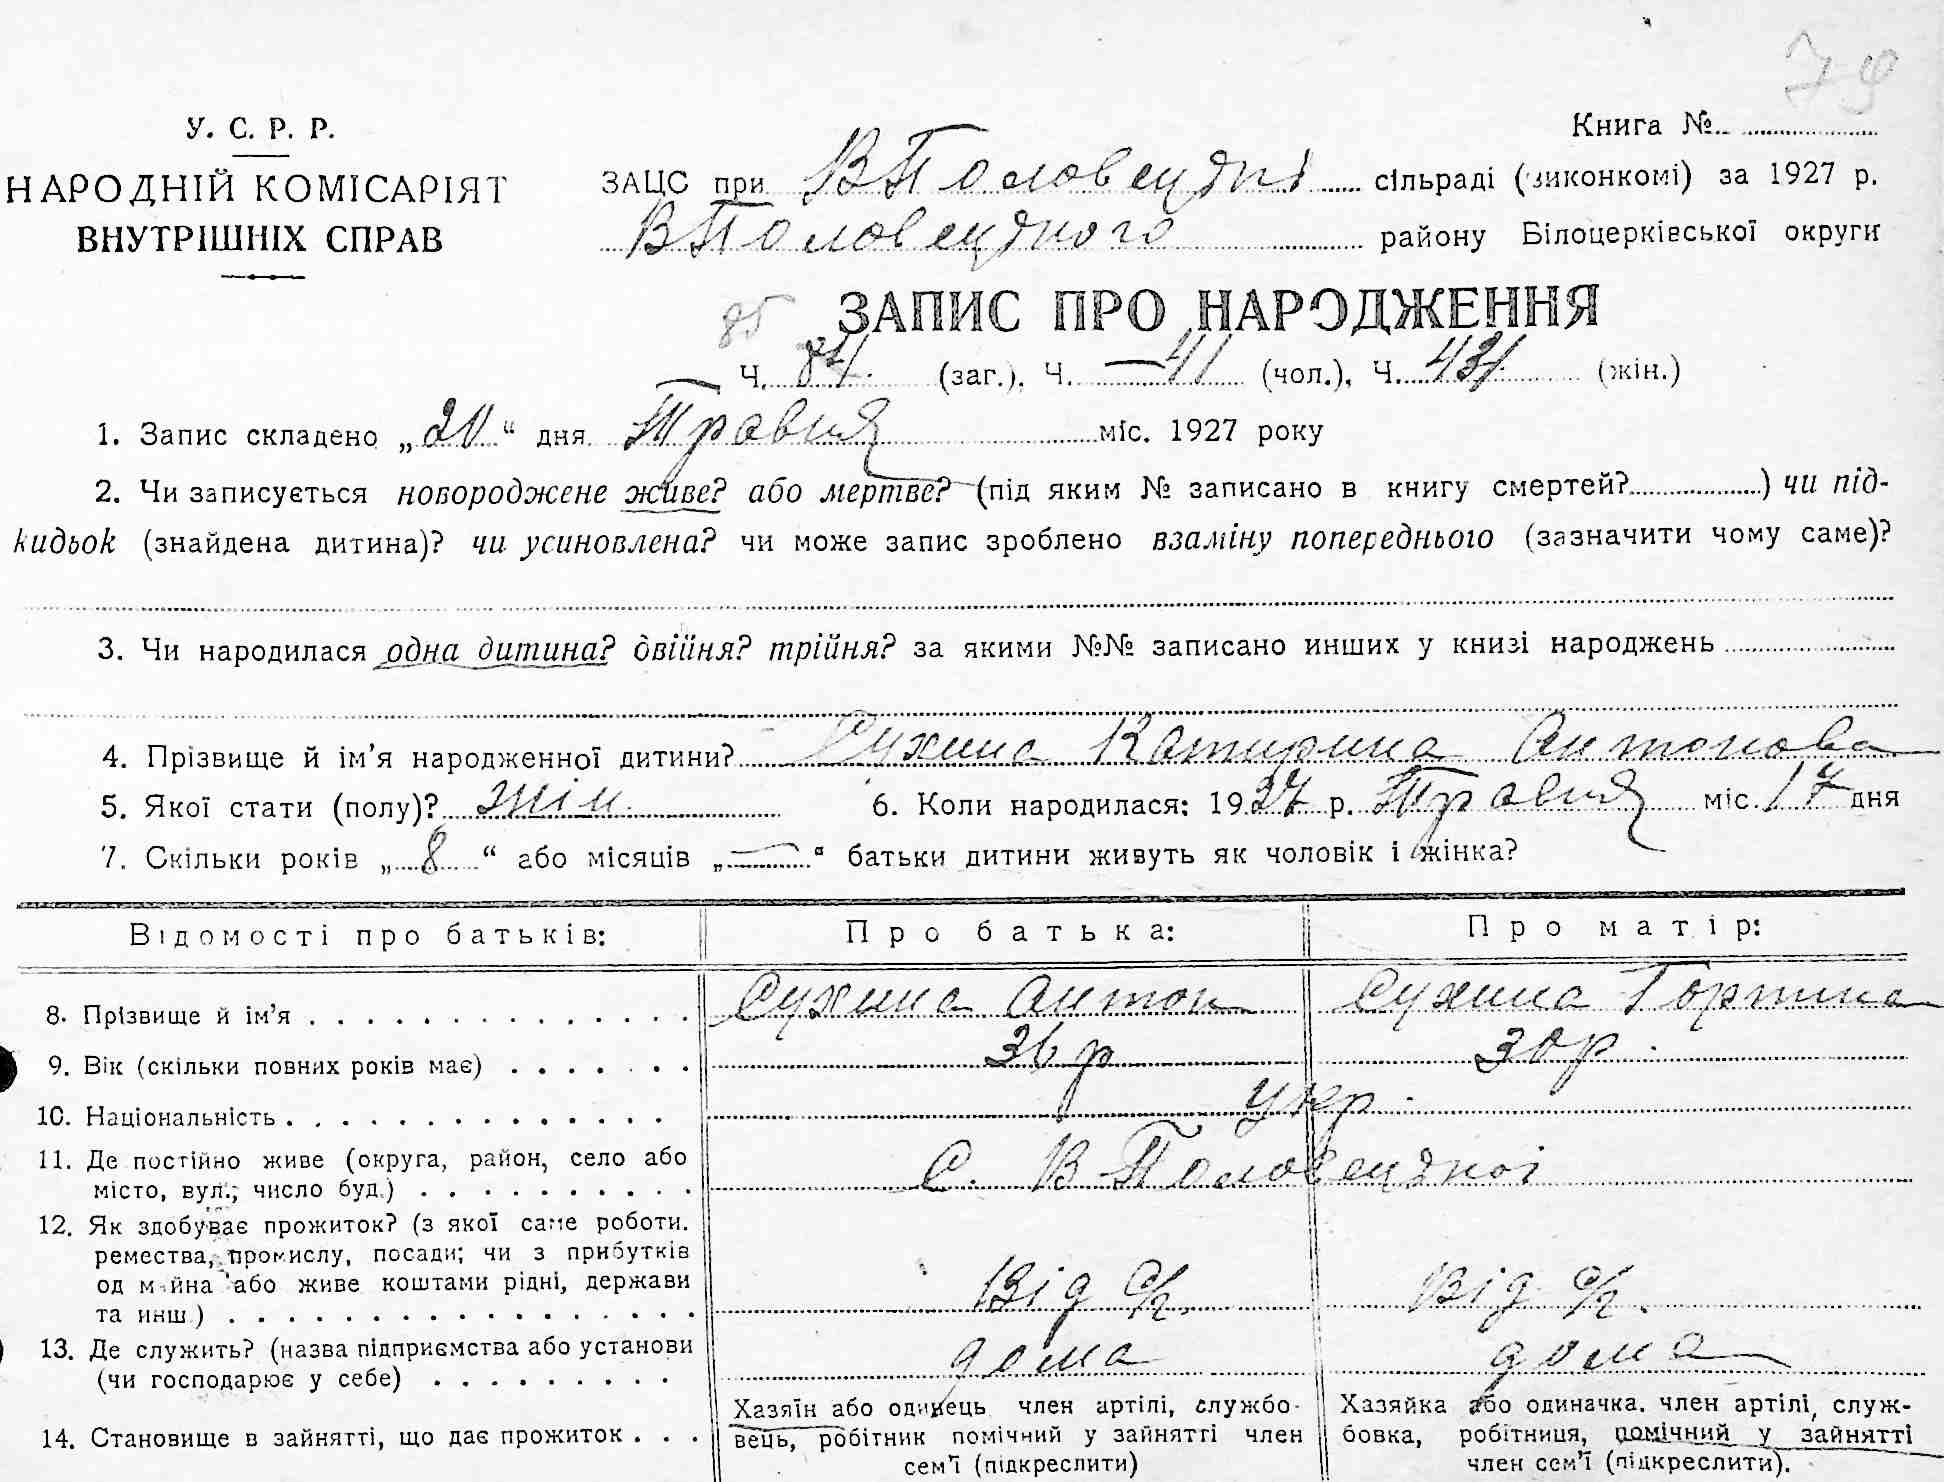 79
У. С. Р. Р.
НАРОДНІЙ КОМІСАРІЯТ
ВНУТРІШНІХ СПРАВ
Книга №
ЗАЦС при В Половецкні сільраді (виконкомі) за 1927 р.
В Половецкного району Білоцерківської округи
85 ЗАПИС ПРО НАРОДЖЕННЯ
Ч. (заг.), Ч. 41 (чол.), Ч. (жін.)
1. Запис складено „20“ дня Травня міс. 1927 року
2. Чи записується новороджене живе? або мертве? (під яким № записано в книгу смертей?) чи під-
кидьок (знайдена дитина)? чи усиновлена? чи може запис зроблено взаміну попереднього (зазначити чому саме)?
3. Чи народилася одна дитина? двійня? трійня? за якими №№ записано инших у книзі народжень
4. Прізвище й ім'я народженної дитини? Сухина Катирина Антонова
5. Якої стати (полу)? жін. 6. Коли народилася: 1927 р. Травня міс. 17 дня
7. Скільки років „8“ або місяців „—“ батьки дитини живуть як чоловік і жінка?
Відомості про батьків: Про батька: Про матір:
8. Прізвище й ім'я Сухина Антон Сухина Гортина
9. Вік (скільки повних років має) 36 р 30 р.
10. Національність укр.
11. Де постійно живе (округа, район, село або
місто, вул.; число буд.) С. В Половецкної
12. Як здобуває прожиток? (з якої саме роботи.
ремества, промислу, посади; чи з прибутків
од майна або живе коштами рідні, держави
та инш.) Від с/г. Від с/г.
13. Де служить? (назва підприємства або установи
(чи господарює у себе) дома дома
14. Становище в зайнятті, що дає прожиток
Хазяїн або одинець член артілі, службо-
вець, робітник помічний у зайнятті член
сем'ї (підкреслити)
Хазяйка або одиначка. член артілі, служ-
бовка, робітниця, помічний у зайнятті
член сем'ї (підкреслити).